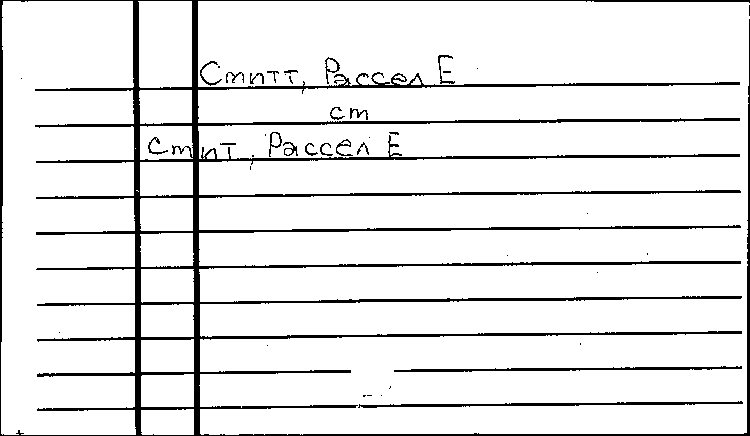 Смитт, Рассел Е
см
Смит, Рассел Е